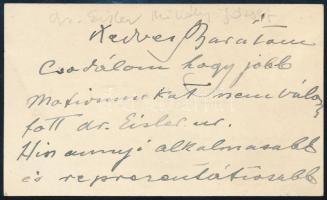 dr. Eisler Mihály József
Kedves Barátom
Csodálom hogy jobb
motivumokat nem válasz
tott dr. Eisler ur.
Hisz annyi alkalmasabb
és reprezentativsebb